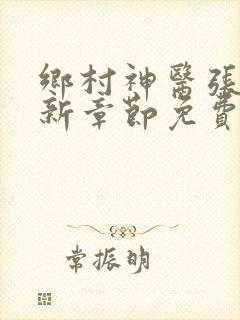 鄉村神醫張
新章節免費
常振明